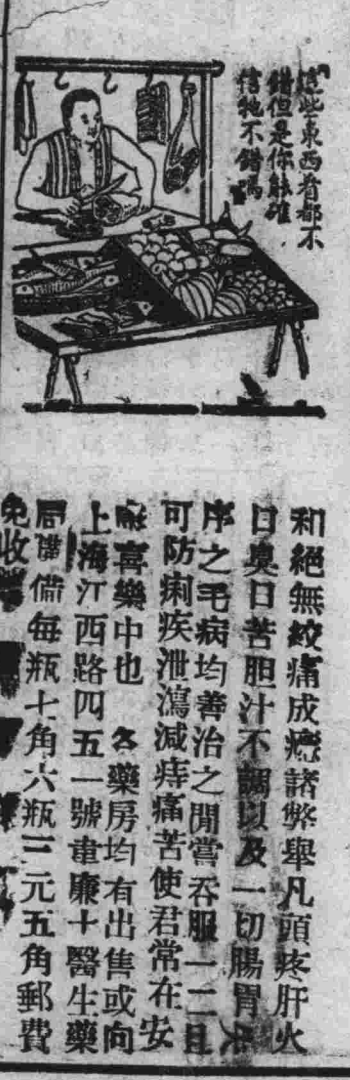 這些東西看都不
錯但是你能確
信牠不錯嗎
和絕無絞痛成癮諸弊舉凡頭疼肝火
口臭口苦胆汁不調以及一切腸胃不
序之毛病均善治之閒嘗吞服一二且
可防痢疾泄瀉減痔痛苦使君常在安
喜樂中也 各藥房均有出售或向
上海江西路四五一號韋廉士醫生藥
局備每瓶七角六瓶三元五角郵費
免收